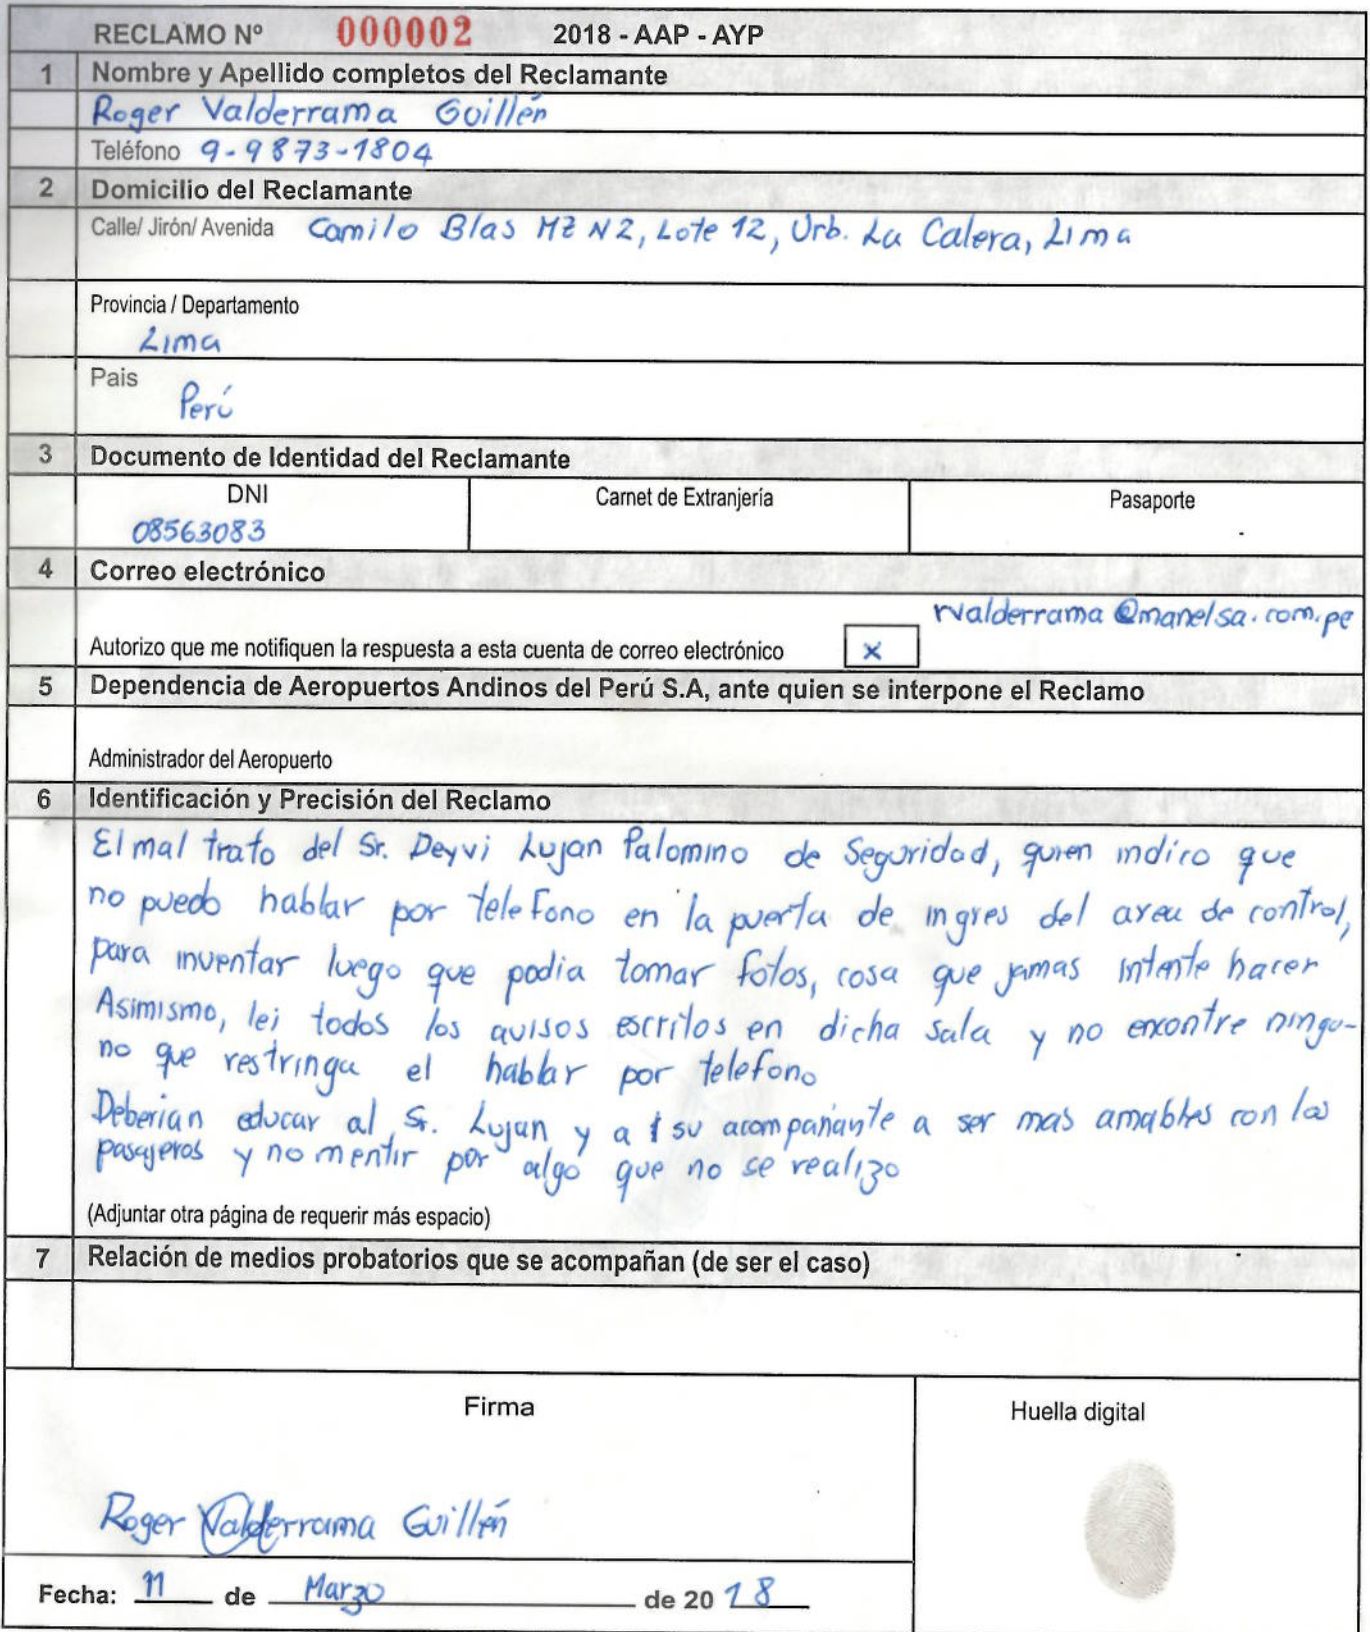 RECLAMO Nº 000002 2018 - AAP - AYP
1 Nombre y Apellido completos del Reclamante
Roger Valderrama Guillén
Teléfono 9-9873-1804
2 Domicilio del Reclamante
Calle/ Jirón/ Avenida Camilo Blas MZ N2, Lote 12, Urb. La Calera, Lima
Provincia / Departamento
Lima
Pais
Perú
3 Documento de Identidad del Reclamante
DNI Carnet de Extranjería Pasaporte
08563083
4 Correo electrónico
rvalderrama@manelsa.com.pe
Autorizo que me notifiquen la respuesta a esta cuenta de correo electrónico x
5 Dependencia de Aeropuertos Andinos del Perú S.A, ante quien se interpone el Reclamo
Administrador del Aeropuerto
6 Identificación y Precisión del Reclamo
El mal trato del Sr. Deyvi Lujan Palomino de Seguridad, quien indico que
no puedo hablar por telefono en la puerta de ingres del area de control,
para inventar luego que podia tomar fotos, cosa que jamas intente hacer
Asimismo, lei todos los avisos escritos en dicha sala y no encontre ningu-
no que restringa el hablar por telefono
Deberian educar al Sr. Lujan y a su acompañante a ser mas amables con los
pasajeros y no mentir por algo que no se realizo
(Adjuntar otra página de requerir más espacio)
7 Relación de medios probatorios que se acompañan (de ser el caso)
Firma Huella digital
Roger Valderrama Guillén
Fecha: 11 de Marzo de 2018